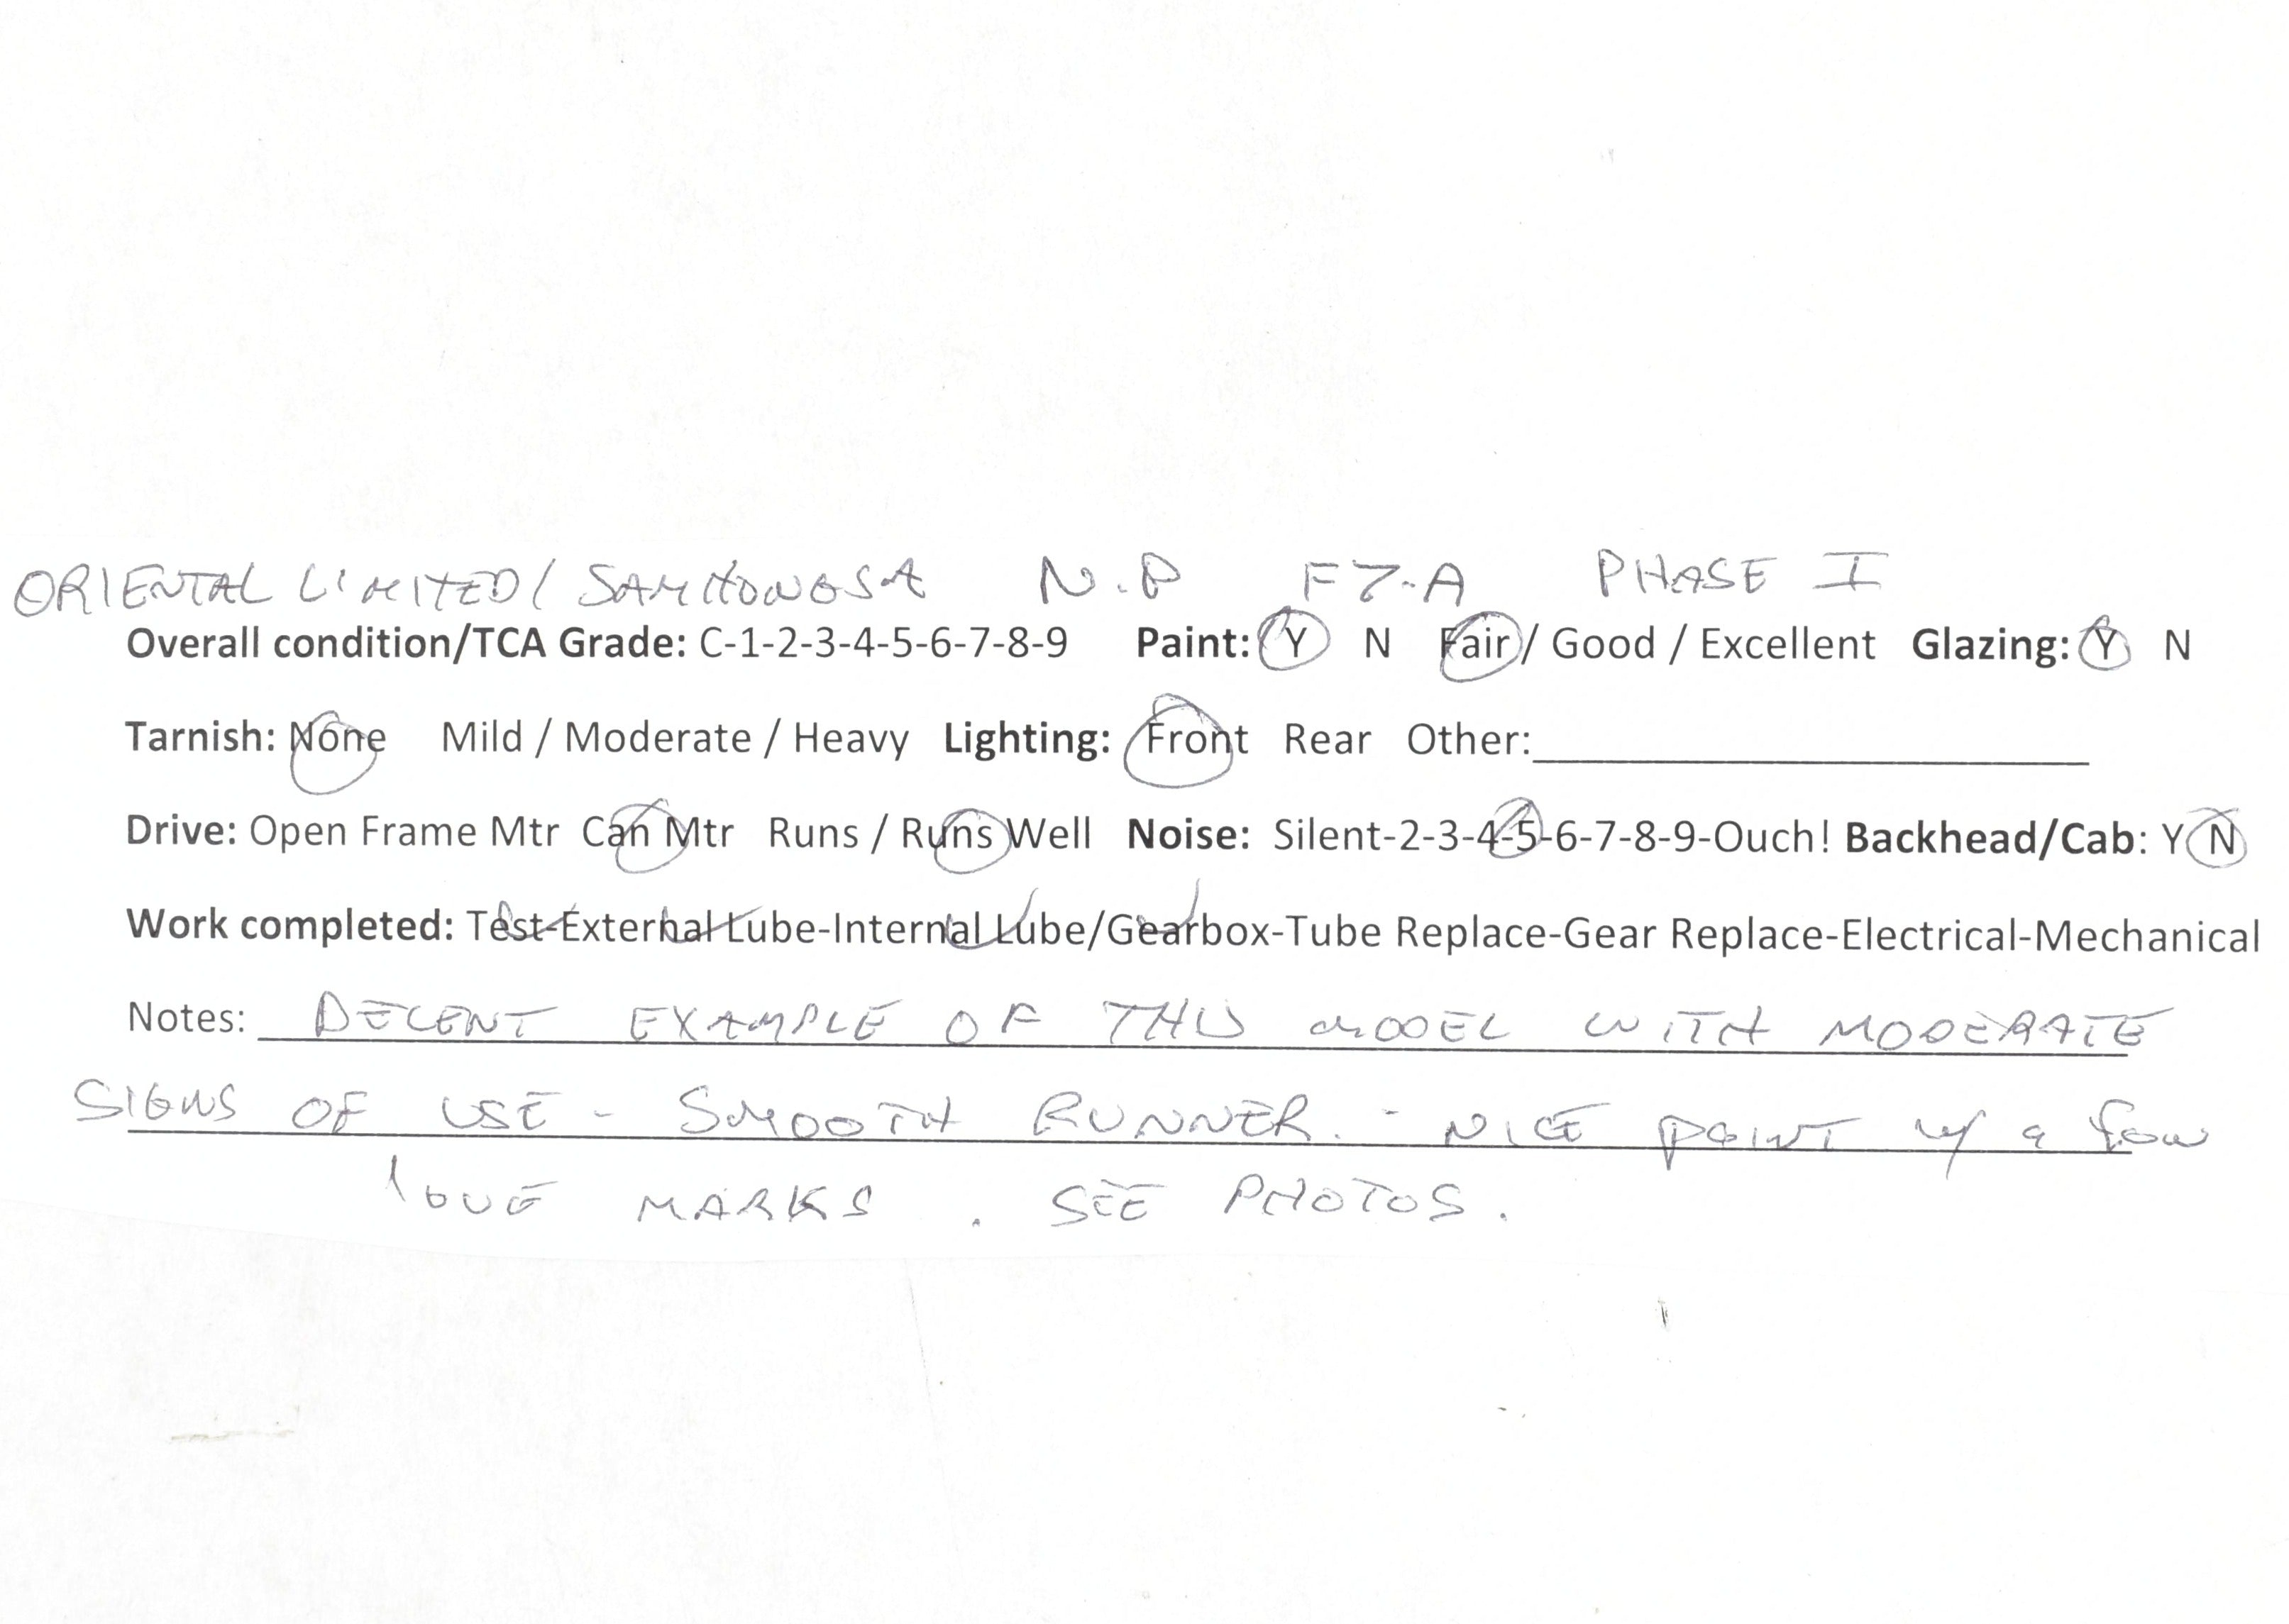 ORIENTAL LIMITED/ SAMHONGSA N.P F7-A PHASE I
Overall condition/TCA Grade: C-1-2-3-4-5-6-7-8-9 Paint: Y N Fair / Good / Excellent Glazing: Y N
Tarnish: None Mild / Moderate / Heavy Lighting: Front Rear Other:
Drive: Open Frame Mtr Can Mtr Runs / Runs Well Noise: Silent-2-3-4-5-6-7-8-9-Ouch! Backhead/Cab: Y N
Work completed: Test-External Lube-Internal Lube/Gearbox-Tube Replace-Gear Replace-Electrical-Mechanical
Notes: DECENT EXAMPLE OF THIS MODEL WITH MODERATE
SIGNS OF USE - SMOOTH RUNNER. - NICE PAINT w/ a few
love MARKS. SEE PHOTOS.